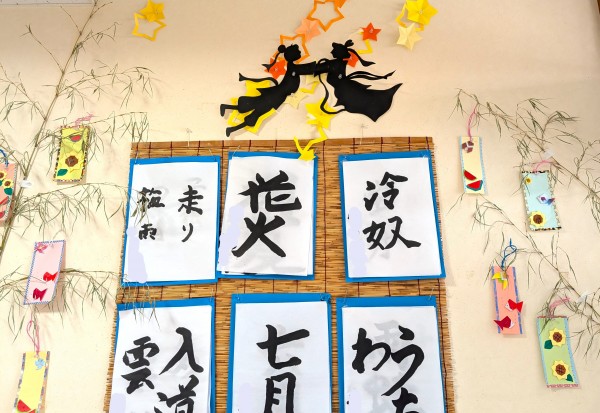 冷奴
花火
走り
梅雨
うち
わ
七月
入道
雲